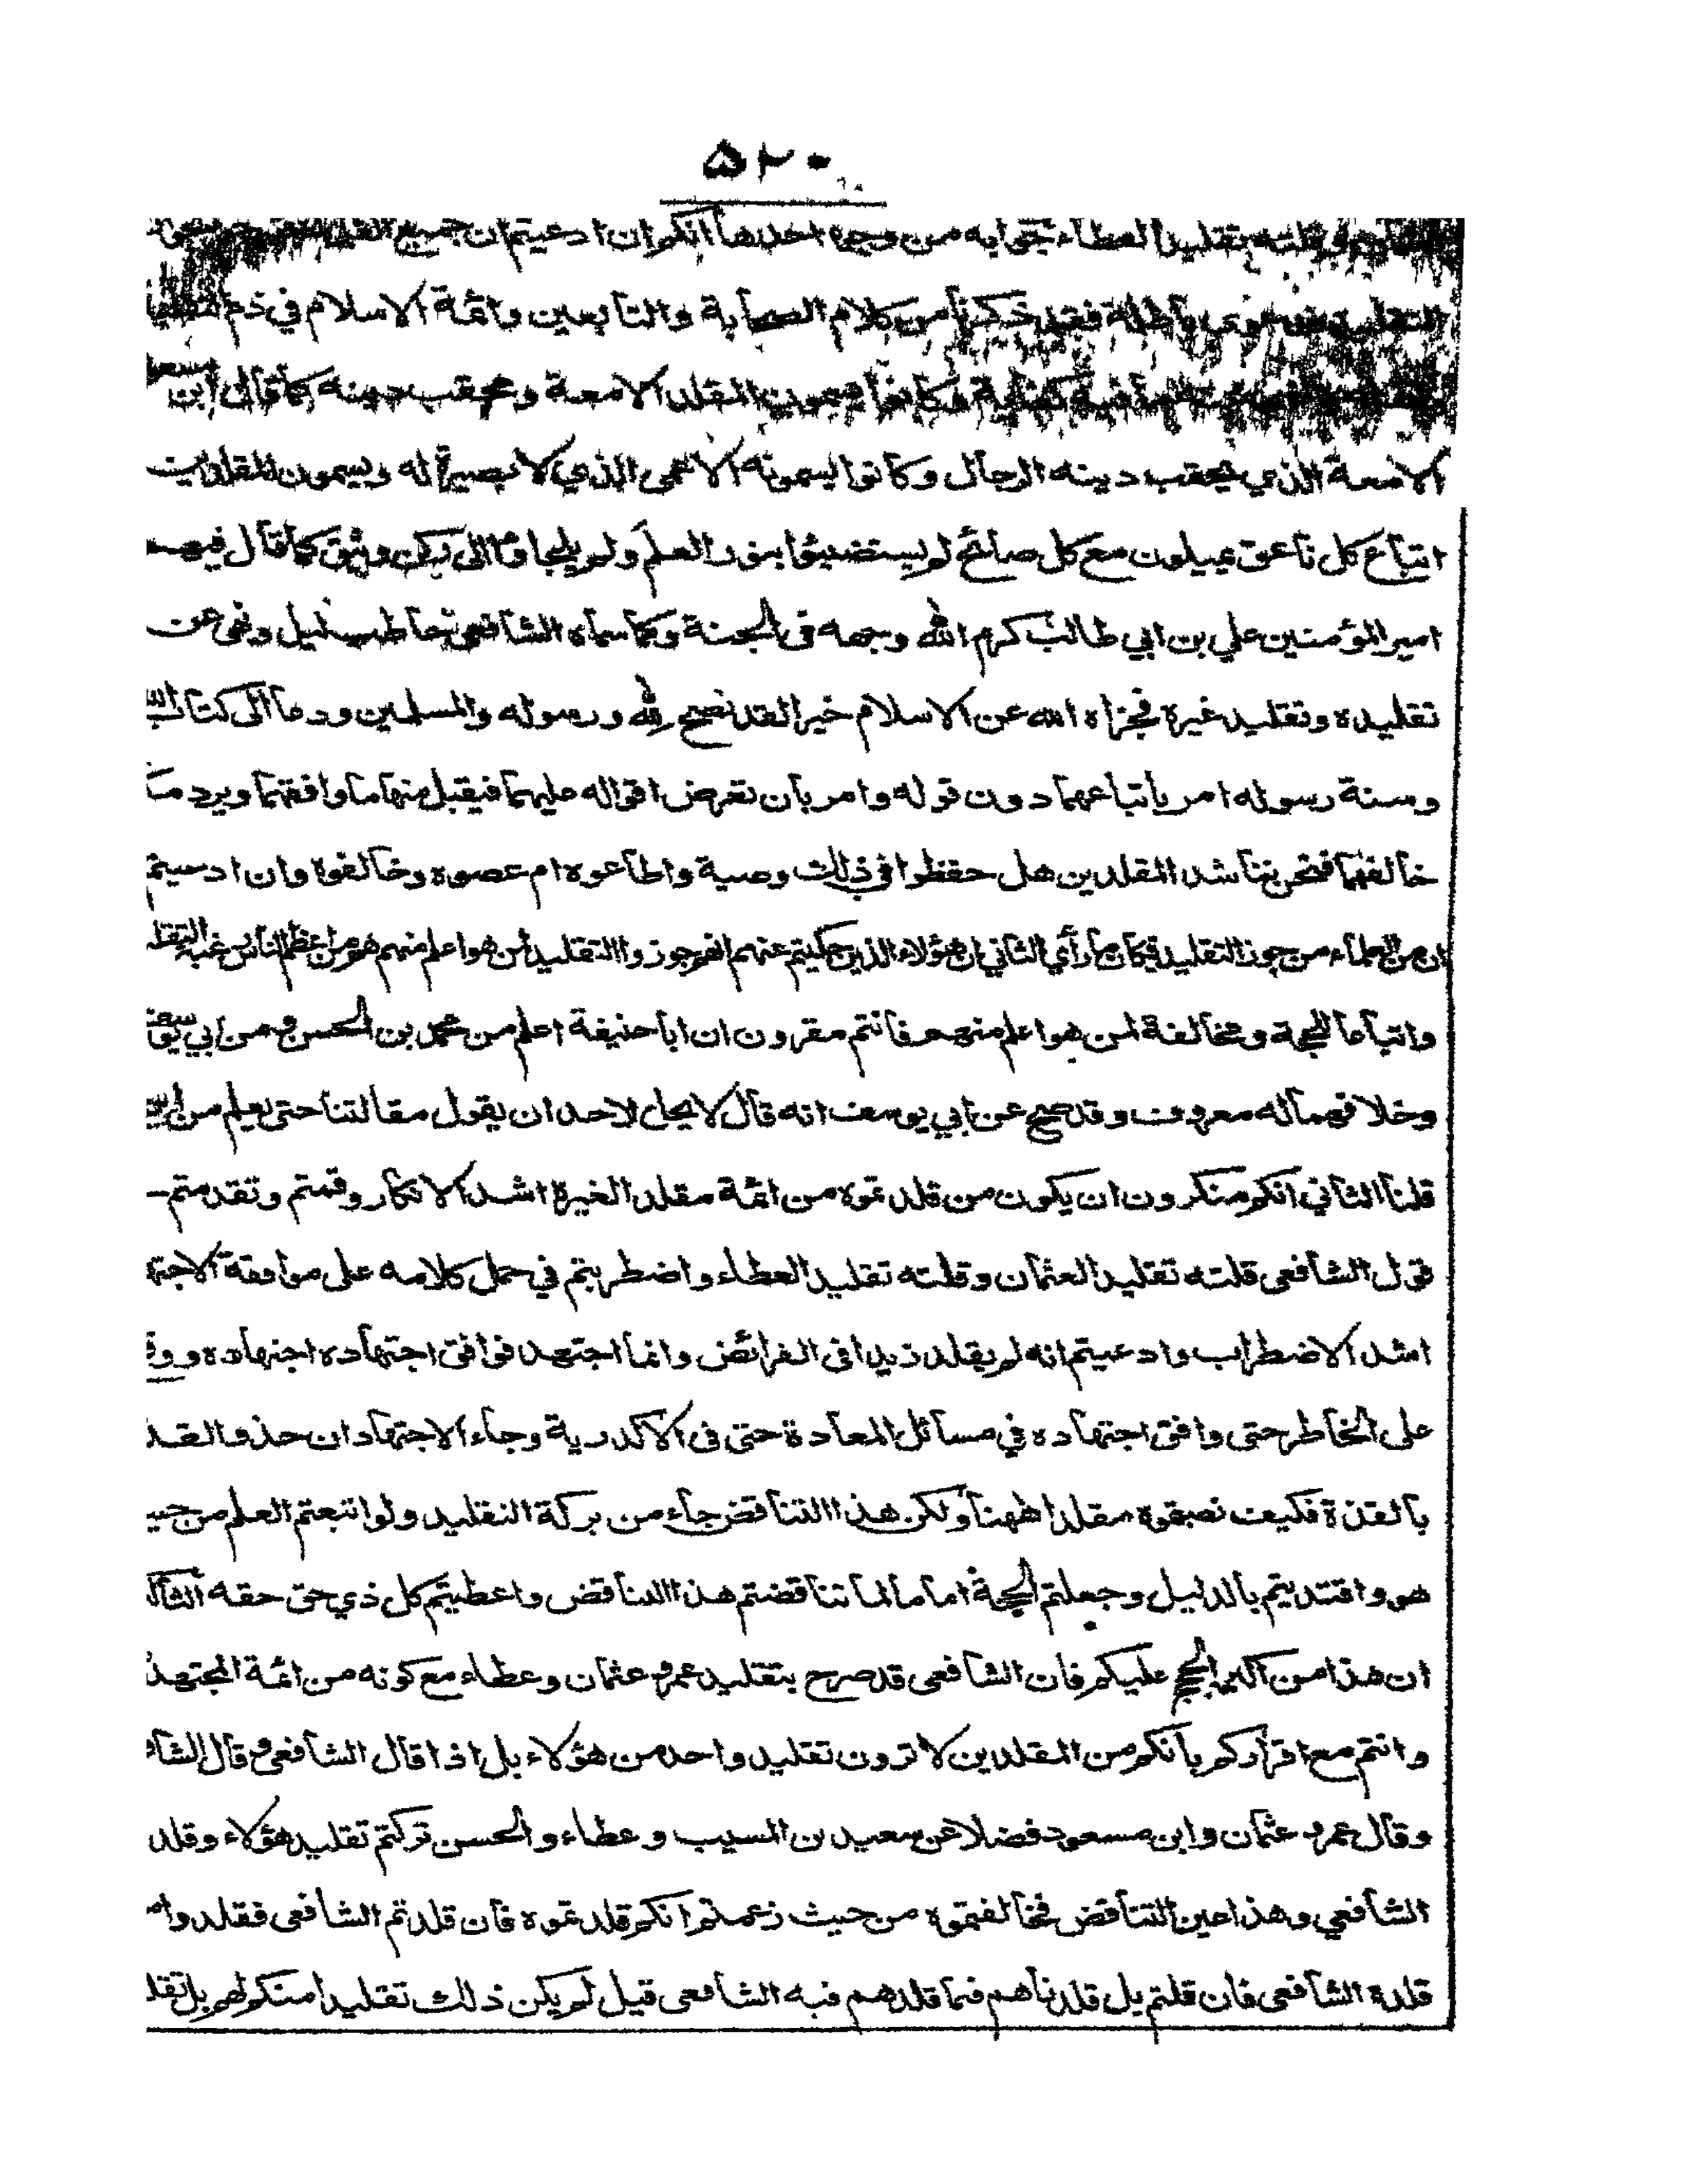 ۵۲۰
وقلته تقليدا لعطاء تجوابه من وجوه احدها انكم ان ادعيتم ان جميع
التقليد دعوى باطلة فقد ذكرنا من كلام الصحابة والتابعين وائمة الاسلام في ذم
ما فيه كفاية وكانوا يسمون المقلد الامعة ومحقب دينه كما قال ابن مسعود
الامعة الذي يحقب دينه الرجال وكانوا يسمونه الاعمى الذي لا بصيرة له ويسمون المقلدين
اتباع كل ناعق يميلون مع كل صائح لم يستضيئوا بنور العلم ولم يلجاوا الى ركن وثيق كما قال فيهم
امير المؤمنين علي بن ابي طالب كرم الله وجهه في الجنة وكما سماه الشافعي حاطب ليل ونهى عن
تقليده وتقليد غيره فجزاه الله عن الاسلام خيرا لقد نصح لله ورسوله والمسلمين ودعا الى كتاب الله
وسنة رسوله امر باتباعهما دون قوله وامر بان تعرض اقواله عليهما فيقبل منها ما وافقهما ويرد ما
خالفهما فنحن نناشد المقلدين هل حفظوا في ذلك وصية واطاعوه ام عصوه وخالفوه وان ادعيتم
ان من العلماء من جوز التقليد فكان ما رأي الثاني ان هؤلاء الذين حكيتم عنهم انهم جوزوا التقليد لمن هو اعلم منهم هم من اعظم الناس رغبة
واتباعا للحجة ومخالفة لمن هو اعلم منهم فانتم مقرون ان ابا حنيفة اعلم من محمد بن الحسن ومن ابي يوسف
وخلافهما له معروف وقد صح عن ابي يوسف انه قال لا يحل لاحد ان يقول مقالتنا حتى يعلم من اين
قلنا الثاني انكم منكرون ان يكون من قلدتموه من ائمة مقلدا لغيره اشد الانكار وقمتم وتقدمتم -
قول الشافعي قلته تقليدا لعثمان وقلته تقليدا لعطاء واضطربتم في حمل كلامه على موافقة الاجتها
اشد الاضطراب وادعيتم انه لم يقلد زيدا في الفرائض وانما اجتهد فوافق اجتهاده اجتهاده ووقع
على الخاطر حتى وافق اجتهاده في مسائل المعادة حتى في الاكدرية وجاء الاجتهادان حذو القذة
بالقذة فكيف نصبتموه مقلدا ههنا ولكن هذا التناقض جاء من بركة التقليد ولو اتبعتم العلم من حيث
هو واقتديتم بالدليل وجعلتم الحجة اماما لما تناقضتم هذا التناقض واعطيتم كل ذي حق حقه الثالث
ان هذا من اكبر الحجج عليكم فان الشافعي قد صرح بتقليد عمر وعثمان وعطاء مع كونه من ائمة المجتهد
وانتم مع اقراركم بانكم من المقلدين لا ترون تقليد واحد من هؤلاء بل اذا قال الشافعي وقال الشا
وقال عمر وعثمان وابن مسعود فضلا عن سعيد بن المسيب وعطاء والحسن تركتم تقليد هؤلاء وقلد
الشافعي وهذا عين التناقض فخالفتموه من حيث زعمتم انكم قلدتموه فان قلدتم الشافعي فقلدوا من
قلده الشافعي فان قلتم بل قلدناهم فيما قلدهم فيه الشافعي قيل لم يكن ذلك تقليدا منكم لهم بل تقليد